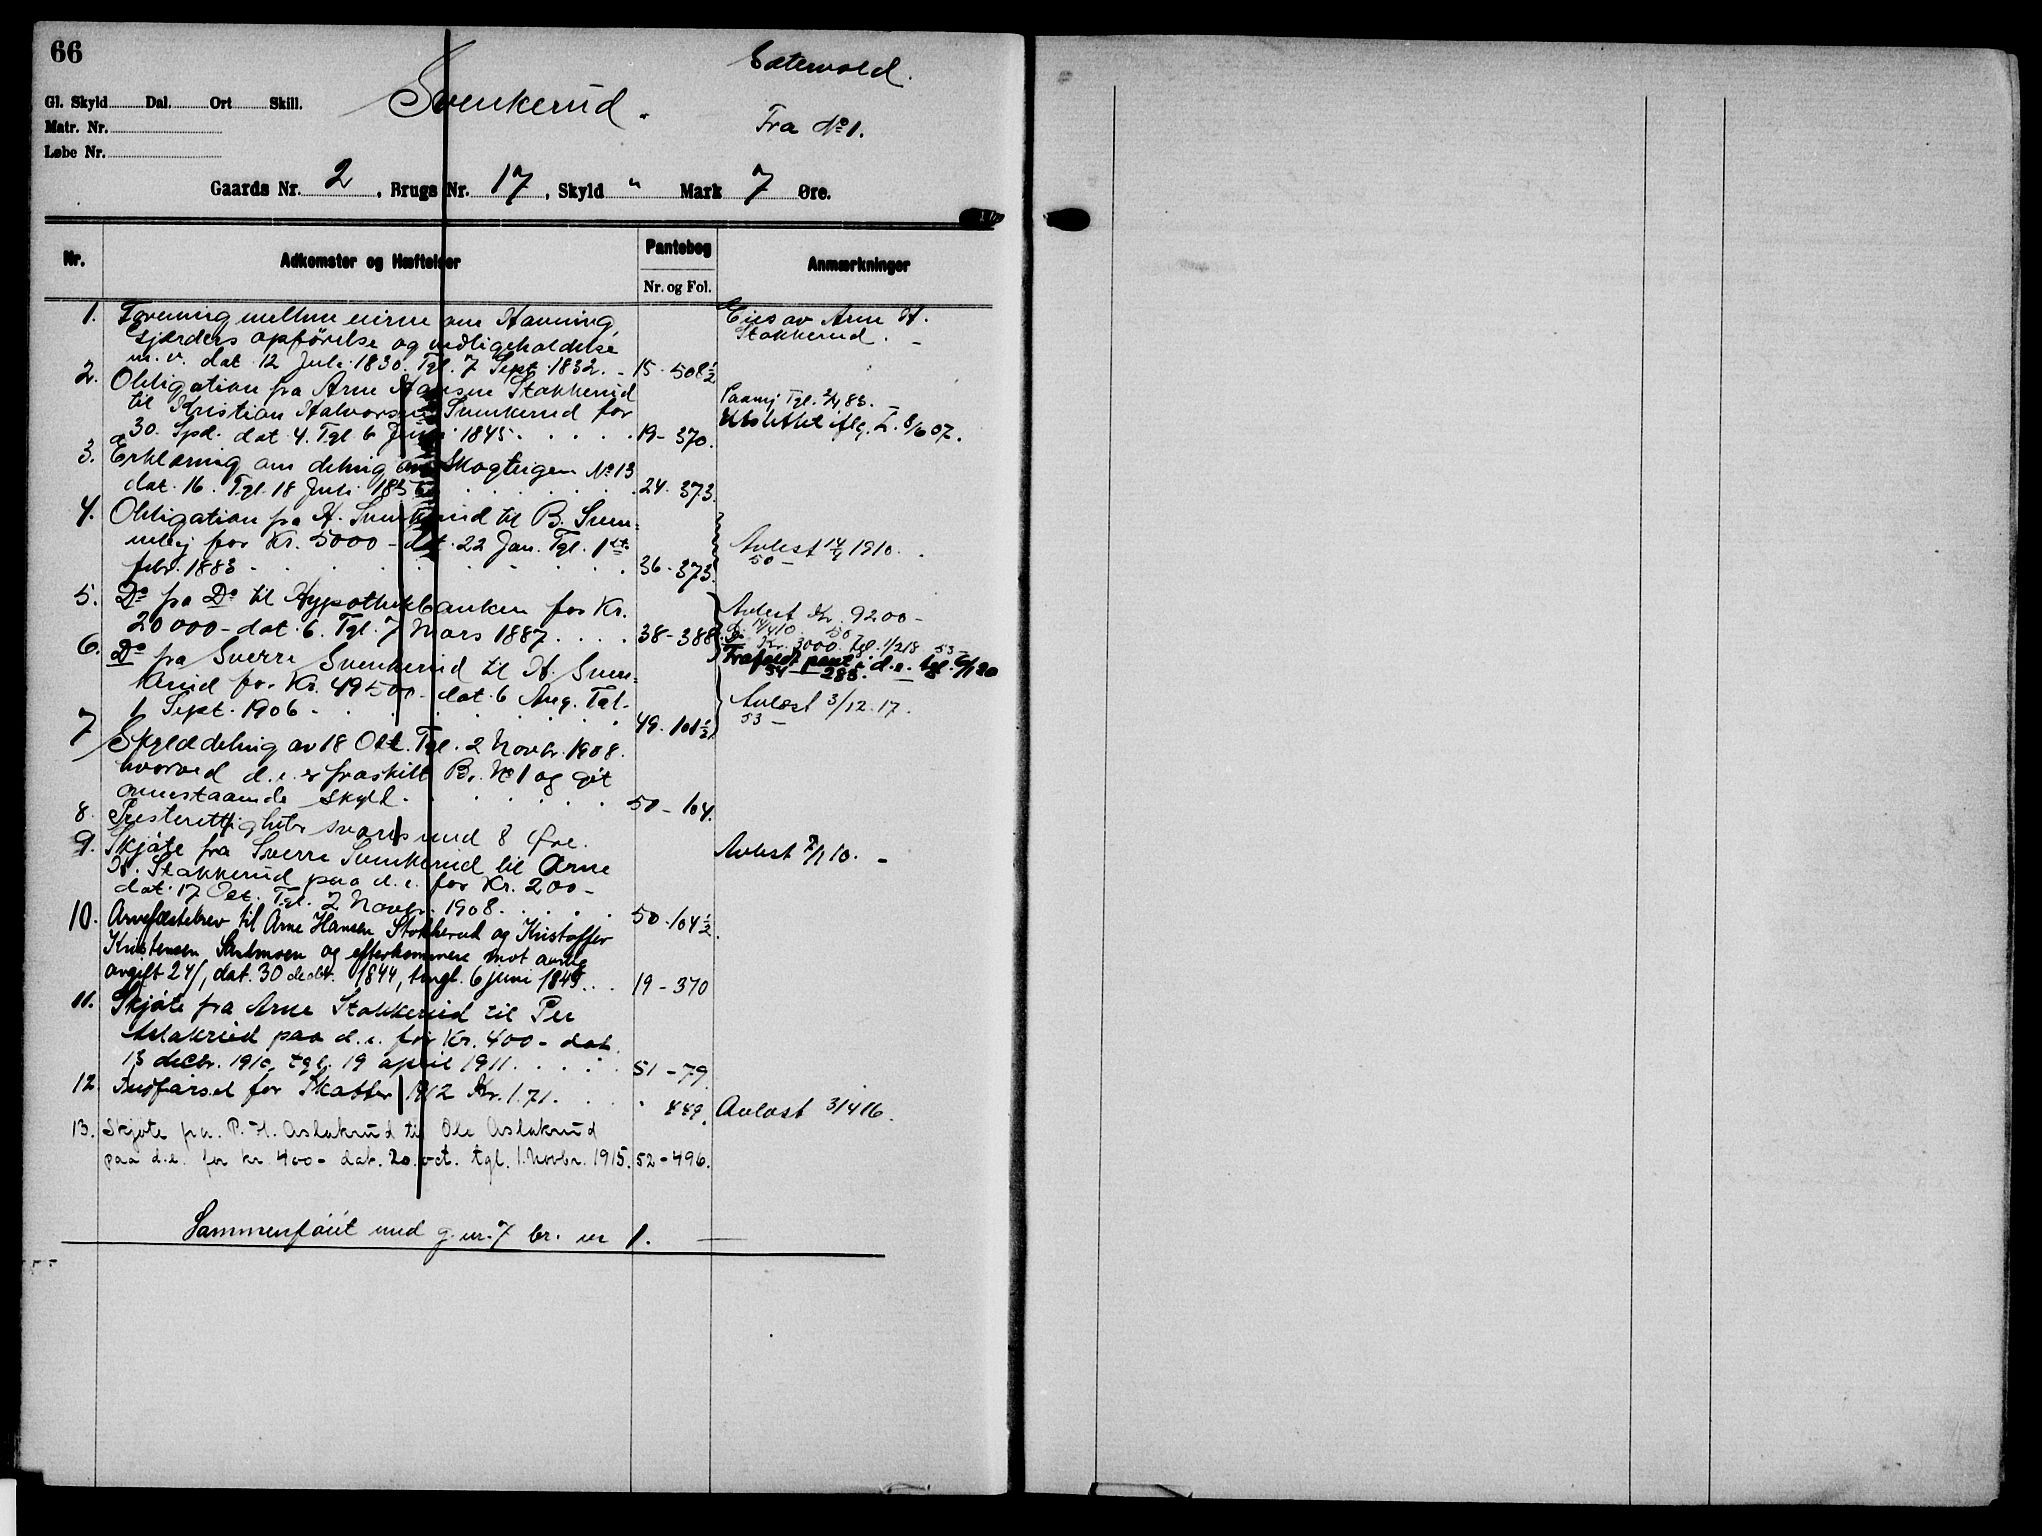 66
Sætervold.
Gl. Skyld Dal. Ort Skill.
Svenkerud.
Matr. Nr.
Fra No 1.
Løbe Nr.
Gaards Nr. 2, Brugs Nr. 17, Skyld " Mark 7 Øre.
Nr. Adkomster og Hæftelser Pantebog Anmærkninger
Nr. og Fol.
1. Forening mellem eierne om Havning,
Gjærders opførelse og vedligeholdelse
m. v. dat 12 Juli 1830. Tgl. 7 Sept. 1832. - 15 - 508½
Eies av Arne H.
Stakkerud. -
2. Obligation fra Arne Hansen Stakkerud
til Kristian Halvorsen Svenkerud for
30. Spd. dat 4. Tgl 6 Juni 1845 . . . . 19 - 370.
Utslettet iflg. L. 8/6 07.
3. Erklæring om deling av Skogteigen No 13
dat. 16. Tgl. 18 Juli . . . . . 24. 373.
4. Obligation fra H. Svenkerud til B. Sven=
for Kr. 5000 - dat. 22 Jan. Tgl. 1ste
febr. 1883 . . . . . 36 - 373.
Avlest 14/4 1910.
50 -
5. Do fra Do til Hypothekbanken for Kr.
20 000 - dat. 6. Tgl. 7 Mars 1887. . . . 38 - 388
Avlest Kr. 9200 -
Kr. 3000 tgl. 1/2 18 53 -
Frafaldt pant i d. e. tgl. 6/1 20
54 - 285.
6. Do fra Sverre Svenkerud til H. Sven=
kerud for Kr. 49500 - dat. 6 Aug. Tgl.
1 Sept. 1906 - . . . . 49. 101½
Avlæst 3/12. 17.
53 -
7 Skylddeling av 18 Okt. Tgl. 2 Novbr. 1908.
hvorved d. e. er fraskilt Br. No 1 og git
ovenstaaende skyld . . . . 50 - 104.
8. Presterettigheter svares med 8 Øre.
9. Skjøte fra Sverre Svenkerud til Arne
H. Stakkerud paa d. e. for Kr. 200 -
dat. 17 Oct. Tgl. 2 Novbr. 1908. . . . . 50 - 104½
Avlest 7/1 10. -
10. Arvefæstebrev til Arne Hansen Stokkerud og Kristoffer
Kristensen Sandmoen og efterkommere mot aarlig
avgift 24/, dat. 30 decbr. 1844, tingl. 6 juni 1845. . . 19 - 370
11. Skjøte fra Arne Stakkerud til Per
Aslakrud paa d. e. for Kr. 400 - dat.
13 decbr. 1910, tgl. 19 april 1911. . . . . 51 - 79.
12. Indførsel for Skatter 1912 Kr. 1.71. . . " 449. Avlæst 3/4 16.
13. Skjøte fra P. H. Aslakrud til Ole Aslakrud
paa d. e. for kr. 400 - dat. 20. oct. tgl. 1. Novbr. 1915. 52 - 496.
Sammenføiet med g. nr. 7 br. nr 1. —